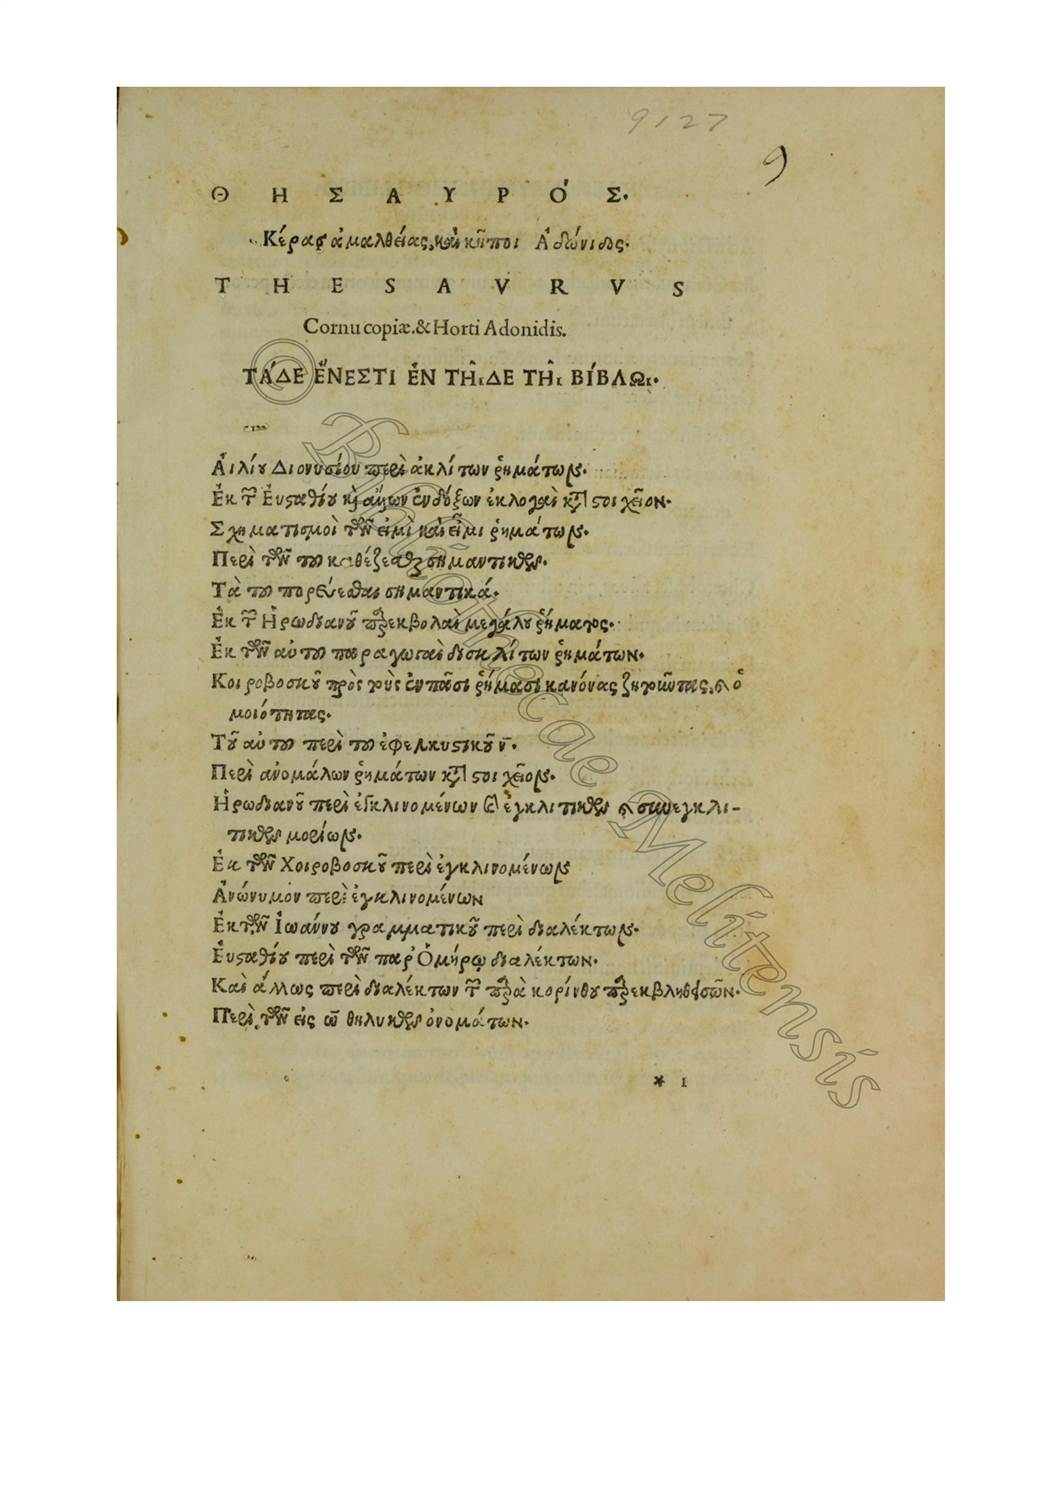 9127
9
ΘΗΣΑΥΡΌΣ.
Κέρας ἀμαλθείας, καὶ κῆποι Ἀδώνιδος.
THESAVRVS
Cornucopiæ.& Horti Adonidis.
ΤΆΔΕ ἜΝΕΣΤΙ ἘΝ ΤΗ͂ιΔΕ ΤΗ͂ι ΒΊΒΛΩι.
Αἰλίου Διονυσίου περὶ ἀκλίτων ῥημάτων.
Ἐκ τῶν Εὐσταθίου καὶ ἄλλων ἐνδόξων ἐκλογαὶ κατὰ στοιχεῖον.
Σχηματισμοὶ τῶν εἰμὶ καὶ εἶμι ῥημάτων.
Περὶ τῶν τοῦ καθέζεσθαι σημαντικῶν.
Τὰ τοῦ πορεύεσθαι σημαντικά.
Ἐκ τῶν Ἡρωδιανοῦ παρεκβολαὶ μεγάλου ῥήματος.
Ἐκ τῶν αὐτοῦ παραγωγαὶ δυσκλίτων ῥημάτων.
Κοιροβοσκοῦ πρὸς τοὺς ἐν πᾶσι ῥήμασι κανόνας ζητοῦντας, καὶ ὁ
μοιότητας.
Τοῦ αὐτοῦ περὶ τοῦ ἐφελκυστικοῦ ν.
Περὶ ἀνομάλων ῥημάτων κατὰ στοιχεῖον.
Ἡρωδιανοῦ περὶ ἐγκλινομένων καὶ ἐγκλιτικῶν καὶ συνεγκλι-
τικῶν μορίων.
Ἐκ τῶν Χοιροβοσκοῦ περὶ ἐγκλινομένων
Ἀνώνυμον περὶ ἐγκλινομένων
Ἐκ τῶν Ἰωάννου γραμματικοῦ περὶ διαλέκτων.
Εὐσταθίου περὶ τῶν παρ' Ὁμήρῳ διαλέκτων.
Καὶ ἄλλως περὶ διαλέκτων τῶν παρὰ κορίνθου παρεκβληθεισῶν.
Περὶ τῶν εἰς ω θηλυκῶν ὀνομάτων.
* 1
© Bibliothecae Melitensis